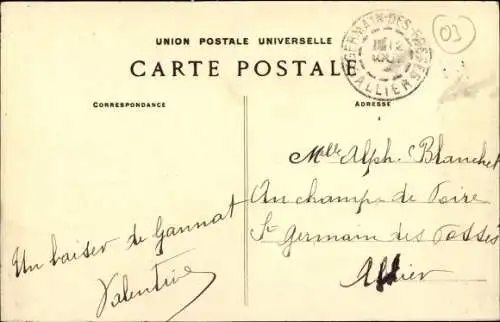 UNION POSTALE UNIVERSELLE
CARTE POSTALE
ST GERMAIN-DES-FOSSÉS
ALLIER
03
CORRESPONDANCE
ADRESSE
Mlle Alph. Blanchet
Au champs de Foire
St Germain des Fossés
Allier
Un baiser de Gannat
Valentine